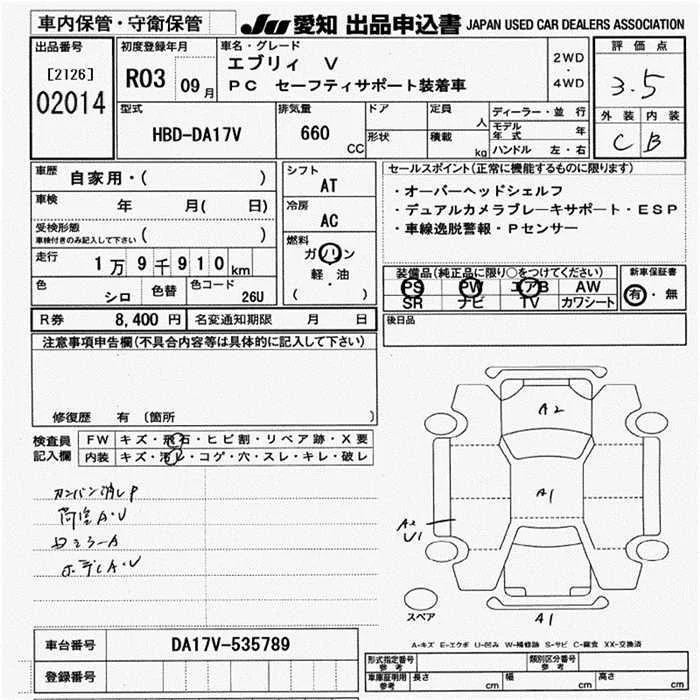 車内保管・守衛保管
JU 愛知 出品申込書 JAPAN USED CAR DEALERS ASSOCIATION
出品番号
[2126]
02014
初度登録年月
R03 09月
車名・グレード
エブリィ V
PC セーフティサポート装着車
2WD
・
4WD
評価点
3.5
外装 内装
C B
型式
HBD-DA17V
排気量
660 CC
ドア
形状
定員 人
積載 kg
ディーラー・並行
モデル年式 年
ハンドル 左・右
車歴 自家用・( )
車検 年 月( 日)
受検形態
車検付きのみ記入して下さい ( )
走行 1万9千910km
色 シロ 色替 色コード 26U
シフト
AT
冷房
AC
燃料
ガソリン
軽・油
( )
セールスポイント(正常に機能するものに限ります)
・オーバーヘッドシェルフ
・デュアルカメラブレーキサポート・ESP
・車線逸脱警報・Pセンサー
装備品(純正品に限り○をつけてください)
PS PW エアB AW
SR ナビ TV カワシート
新車保証書
有・無
R券 8,400円 名変通知期限 月 日
後日品
注意事項申告欄(不具合内容等は具体的に記入して下さい)
修復歴 有 〔箇所 〕
検査員
記入欄
FW キズ・飛石・ヒビ割・リペア跡・X要
内装 キズ・汚レ・コゲ・穴・スレ・キレ・破レ
カンバン消しP
荷室A・U
ロミラーA
ボデーA・U
A2
A1
A2
U1
A1
スペア
A-キズ E-エクボ U-凹み W-補修跡 S-サビ C-腐食 XX-交換済
車台番号 DA17V-535789
登録番号
形式指定番号
参考
類別区分番号
参考
車庫証明用
参考
長さ cm 幅 cm 高さ cm